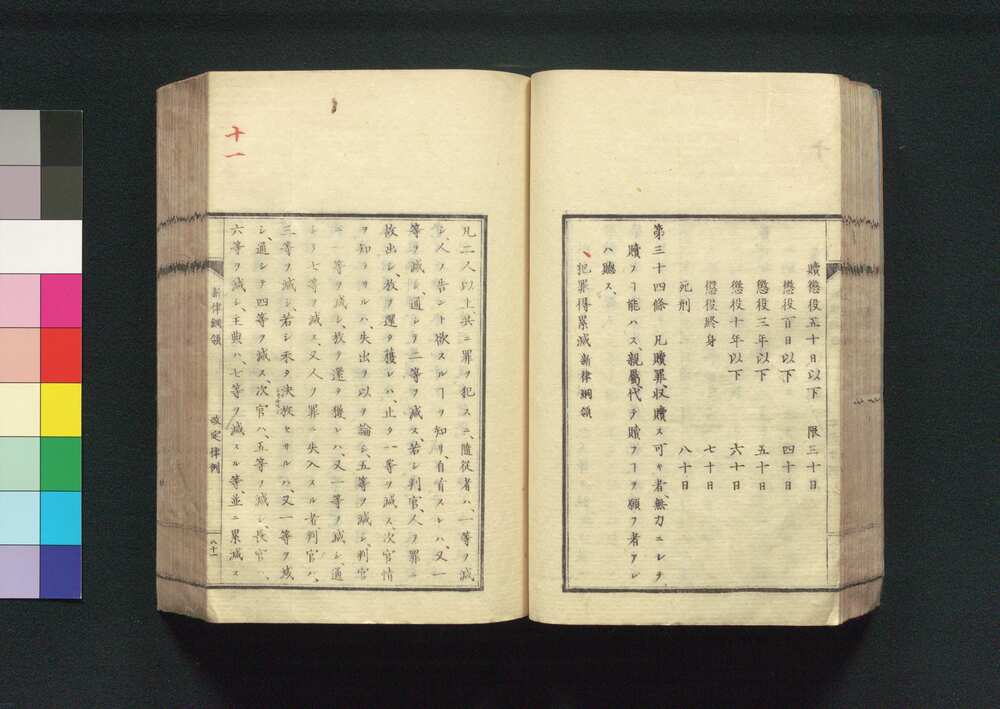 贖懲役五十日以下　限三十日
懲役百日以下　四十日
懲役三年以下　五十日
懲役十年以下　六十日
懲役終身　七十日
死刑　八十日
第三十四條　凡贖罪、収贖ス可キ者、無力ニシテ
贖フヿ能ハス、親屬、代テ贖フヿヲ願フ者アレ
ハ聽ス、
犯罪得累減 新律綱領
十一
凡二人以上共ニ罪ヲ犯スニ、隨従者ハ、一等ヲ減
シ、人ノ告ント欲スルヿヲ知リ、自首スレハ、又一
等ヲ減シ、通シテ二等ヲ減ス、若シ判官、人ノ罪ニ
故出シ、放ヲ還タ獲レハ、止タ一等ヲ減ス、次官情
ヲ知ラサルハ、失出ヲ以テ論シ、五等ヲ減シ、判官
ニ一等ヲ減シ、放ヲ還タ獲レハ、又一等ヲ減シ、通
シテ七等ヲ減ス、又人ノ罪ニ失入スル者、判官ハ、
三等ヲ減シ、若シ未タ決放セサルハ、又一等ヲ減
シ、通シテ四等ヲ減ス、次官ハ、五等ヲ減シ、長官ハ、
六等ヲ減シ、主典ハ、七等ヲ減スル等、並ニ累減ス
新律綱領　改定律例